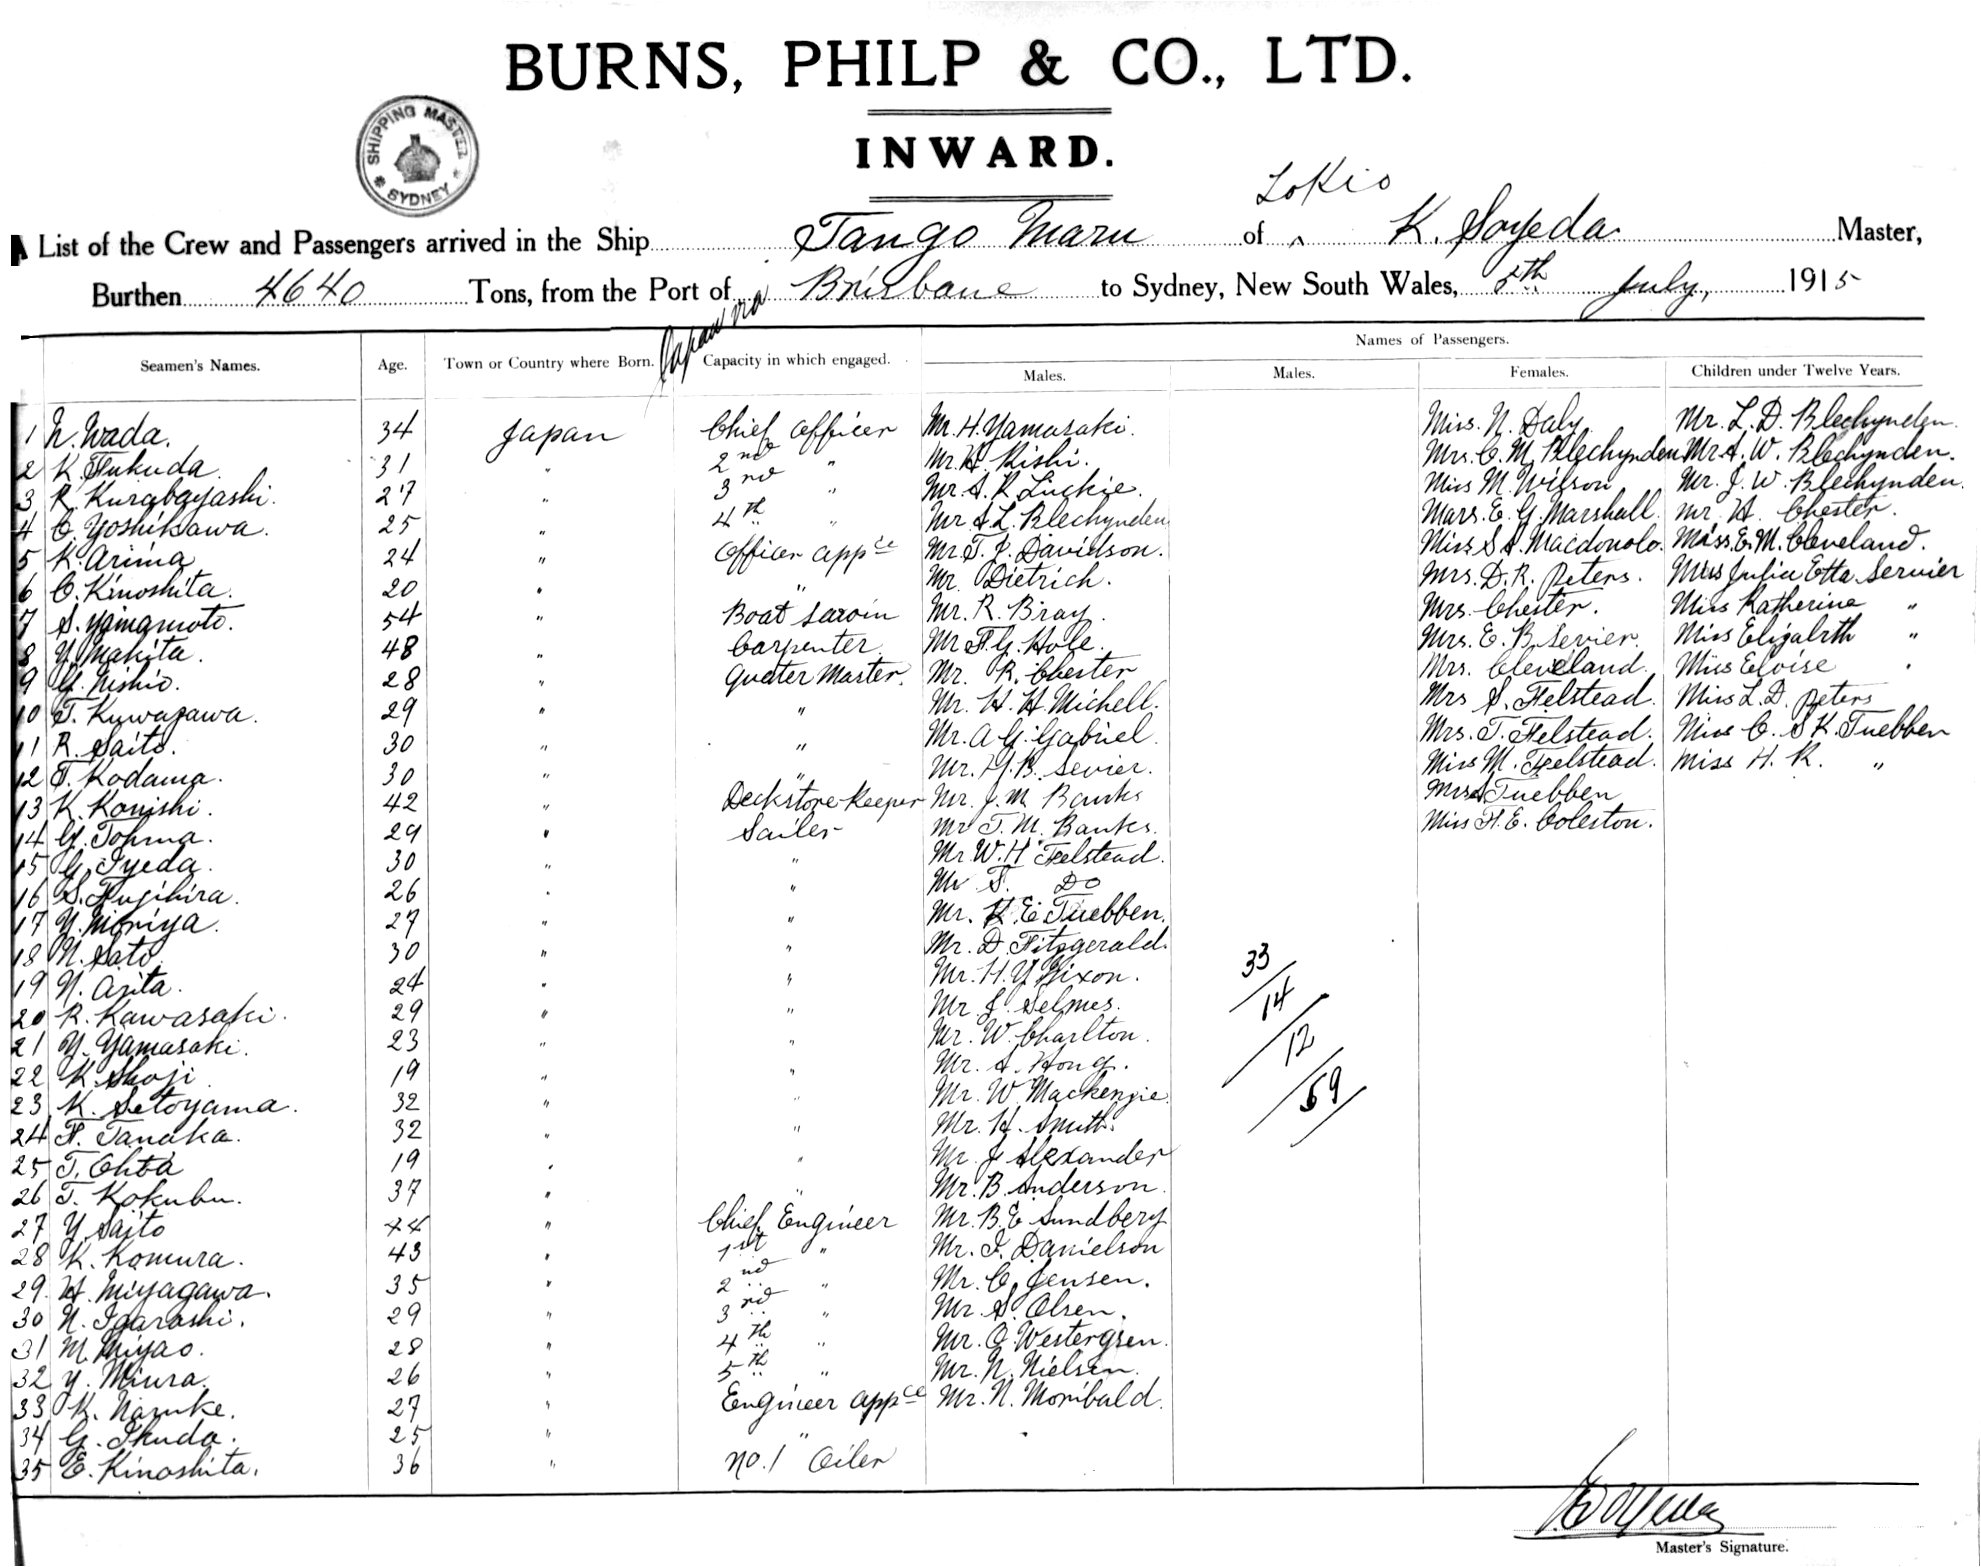 BURNS, PHILP & CO., LTD.
SHIPPING MASTER SYDNEY
INWARD.
Tokio
A List of the Crew and Passengers arrived in the Ship Tango Maru of ^ K. Soyeda Master,
Burthen 4640 Tons, from the Port of Japan via Brisbane to Sydney, New South Wales, 5th July, 1915
Names of Passengers.
Seamen's Names. Age. Town or Country where Born. Capacity in which engaged. Males. Males. Females. Children under Twelve Years.
1 N. Wada. 34 Japan Chief Officer Mr. H. Yamasaki. Miss. N. Daly Mr. L. D. Blechynden.
2 K. Fukuda. 31 " 2nd " Mr. H. Kishi. Mrs. C. M. Blechynden Mr A. W. Blechynden.
3 R. Kurabayashi. 27 " 3rd " Mr. A. R. Luckie. Miss M. Wilson Mr. J. W. Blechynden.
4 C. Yoshikawa. 25 " 4th " Mr A. L. Blechynden Mars. E. G. Marshall. Mr H. Chester.
5 K. Arima 24 " Officer appce Mr T. J. Davidson. Miss S A. Macdonolo. Miss. E. M. Cleveland.
6 C. Kinoshita. 20 " " Mr. Dietrich. Mrs. D. R. Peters. Miss Julia Etta Servier
7 S. Yamamoto. 54 " Boat swain Mr. R. Bray. Mrs. Chester. Miss Katherine "
8 Y. Makita. 48 " Carpenter. Mr F. G. Hole. Mrs. E. B. Sevier. Miss Elizabeth "
9 G. Nishio. 28 " Quater Master. Mr. R. Chester Mrs. Cleveland. Miss Eloise "
10 T. Kuwazawa. 29 " " Mr. H. H. Michell. Mrs S. Felstead. Miss L. D. Peters
11 R. Saito. 30 " " Mr. A. G. Gabriel. Mrs. T. Felstead. Miss C. S K. Tuebben
12 T. Kodama. 30 " " Mr. H. B. Sevier. Miss M. Felstead. Miss H. R. "
13 K. Konishi. 42 " Deckstore-keeper Mr. J. M. Banks Mrs A Tuebben
14 G. Tohma. 29 " Sailer Mr T. M. Banks. Miss F. E. Coleston.
15 G. Iyeda. 30 " " Mr. W. H. Felstead.
16 S. Fujihira. 26 " " Mr S. Do
17 Y. Moriya. 27 " " Mr. K. E. Tuebben.
18 N. Sato. 30 " " Mr. D. Fitzgerald.
19 N. Arita. 24 " " Mr. H. Y. Nixon. 33
20 R. Kawasaki. 29 " " Mr. J. Selmes. 14
21 Y. Yamasaki. 23 " " Mr. W. Charlton. 12
22 K. Shoji 19 " " Mr. A. Hong.
23 K. Setoyama. 32 " " Mr. W. Mackenzie. 59
24 F. Tanaka. 32 " " Mr. H. Smith.
25 T. Ohta 19 " " Mr. J. Alexander
26 T. Kokubu. 37 " " Mr. B. Anderson.
27 Y. Saito 44 " Chief Engineer Mr. B. E. Sundberg
28 K. Komura. 43 " 1st " Mr. I. Danielson
29 H. Miyagawa. 35 " 2nd " Mr. C. Jensen.
30 N. Igarashi. 29 " 3rd " Mr. S. Olsen.
31 M. Miyao. 28 " 4th " Mr. O. Westergren.
32 Y. Miura. 26 " 5th " Mr. N. Nielsen.
33 K. Naruke. 27 " Engineer appce Mr. N. Morribald.
34 G. Ikuda. 25 " "
35 E. Kinoshita. 36 " No. 1 Oiler
Master's Signature.